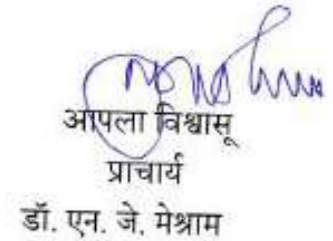 आपला विश्वासू
प्राचार्य
डॉ. एन. जे. मेश्राम